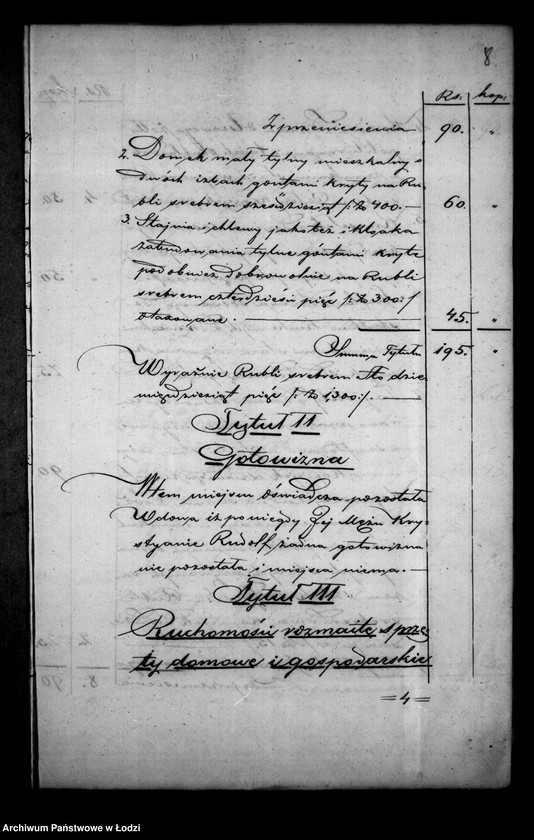 8
Rs. kop.
Z przeniesienia 90. "
2. Domek mały tylny mieszkalny o
dwóch izbach gontami kryty na Ru-
bli srebrem sześćdziesiąt /: Zł 400.— 60. "
3. Stajnia i chlewy jakoteż i Kloaka
zabudowania tylne góntami kryte
podobnież dobrowolnie na Rubli
srebrem czterdzieści pięć /: Zł 300:/
otaxowane. 45. "
Summa Tytułu 195. "
Wyraźnie Rubli srebrem Sto dzie-
więdziesiąt pięć /: Zł 1,300:/. —
Tytuł II
Gotowizna
W tem miejscu oświadcza pozostała
Wdowa iż po niegdy Jej Mężu Kry-
styanie Rudolf żadna gotowizna
nie pozostała i miejsca niema. —
Tytuł III
Ruchomości rozmaite sprzę-
ty domowe i gospodarskie
=4=
Archiwum Państwowe w Łodzi